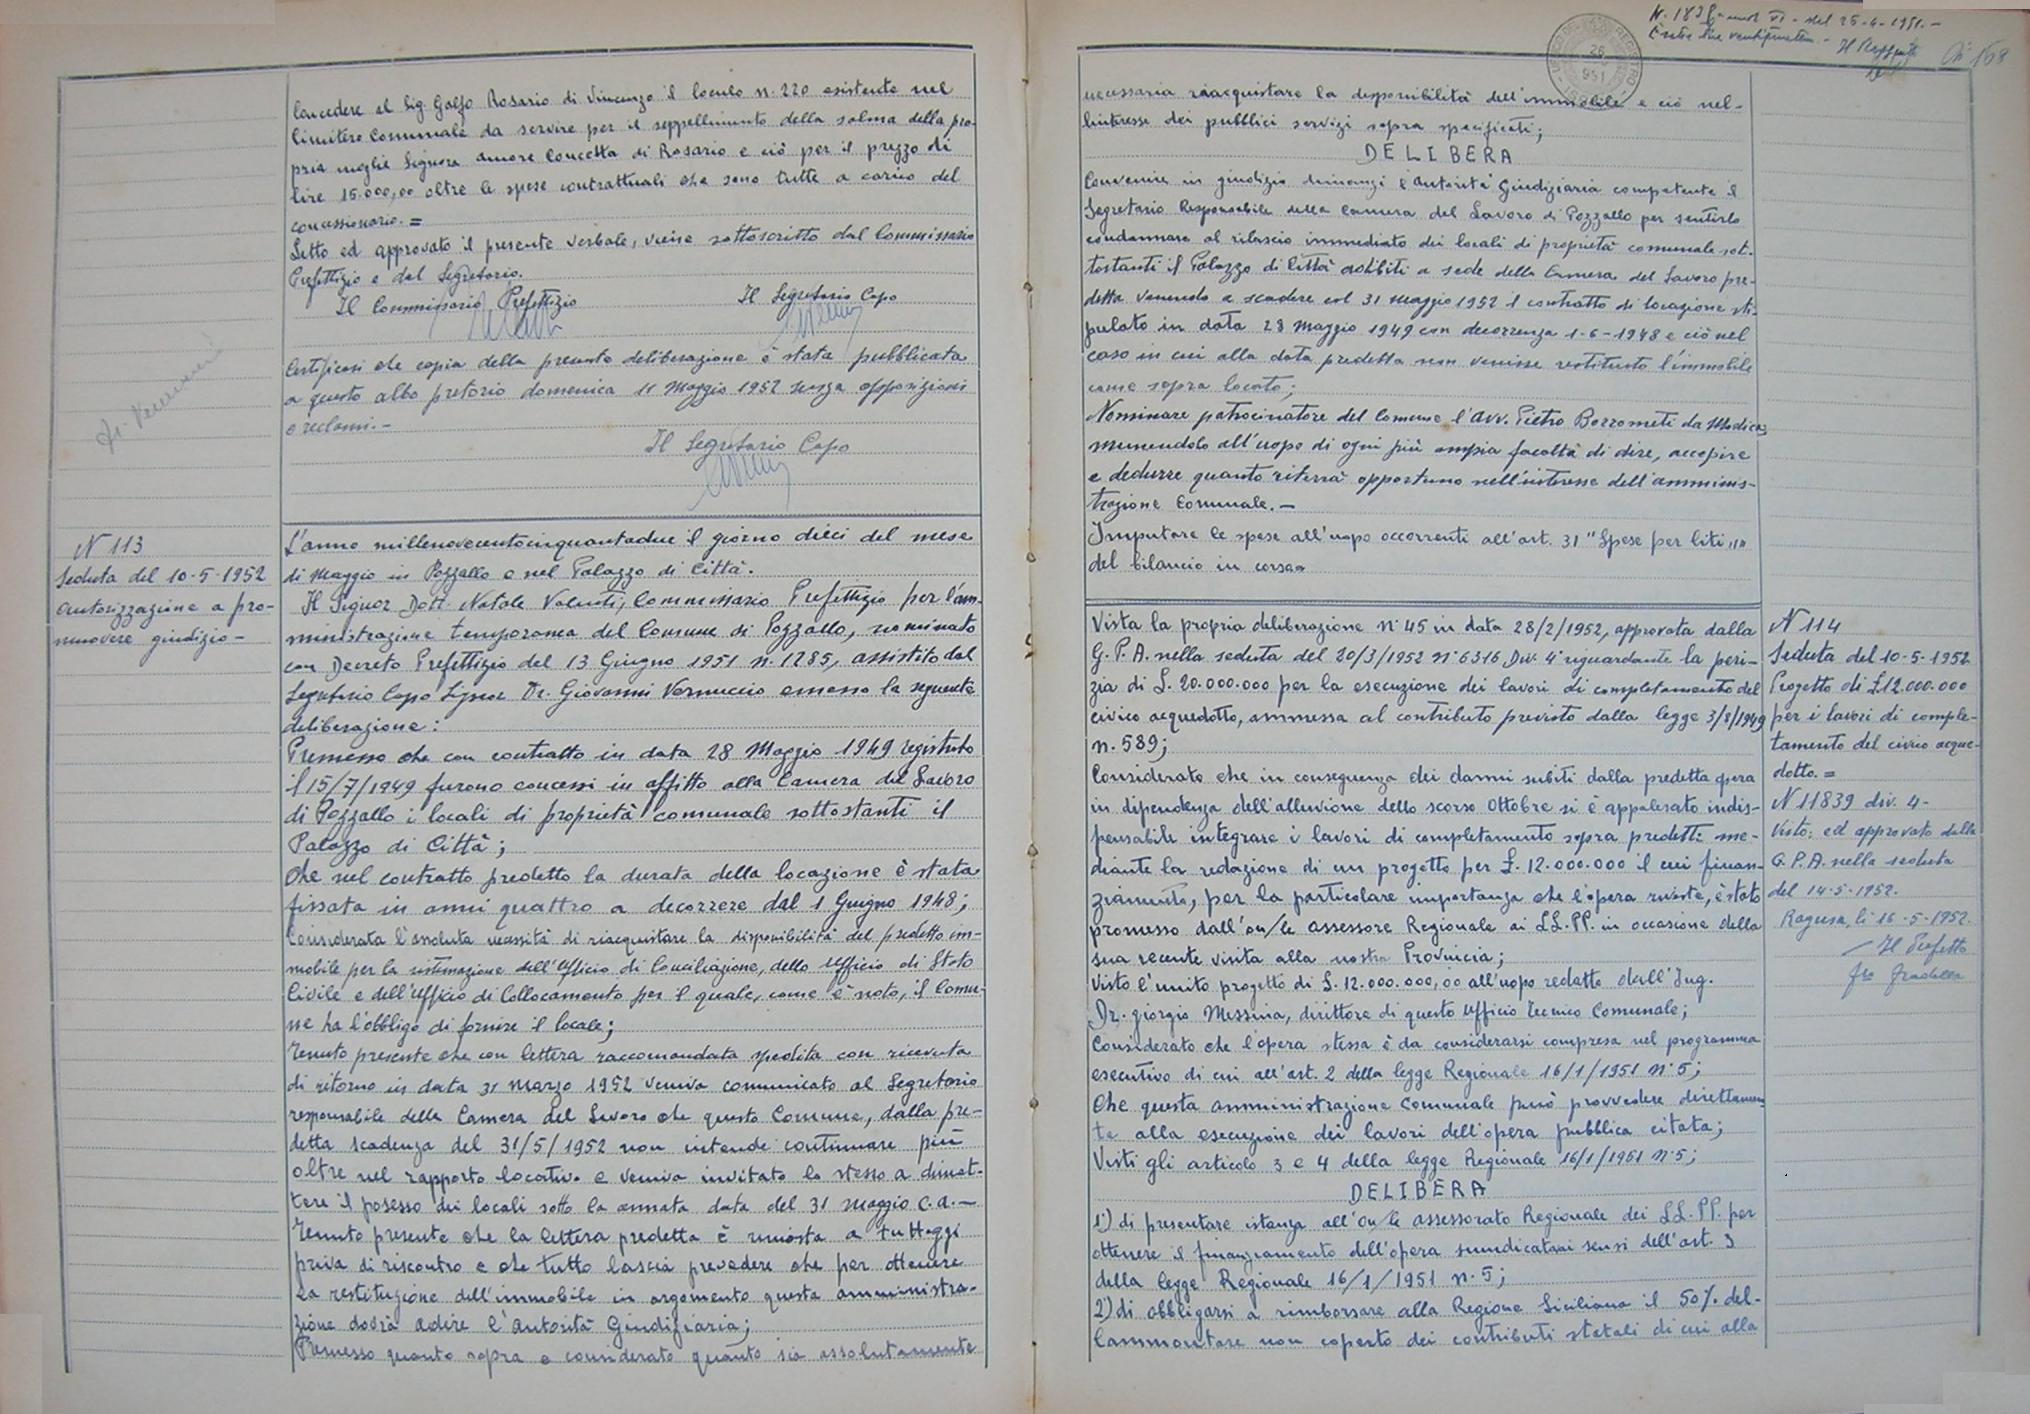 Concedere al Sig. Galfo Rosario di Vincenzo il loculo n. 220 esistente nel
Cimitero Comunale da servire per il seppellimento della salma della pro-
pria moglie Signora Amore Concetta di Rosario e ciò per il prezzo di
lire 15.000,00 oltre le spese contrattuali che sono tutte a carico del
concessionario. =
Letto ed approvato il presente verbale, viene sottoscritto dal Commissario
Prefettizio e dal Segretario.
Il Commissario Prefettizio Il Segretario Capo
Certificasi che copia della presente deliberazione è stata pubblicata
a questo albo pretorio domenica 11 Maggio 1952 senza opposizioni
o reclami. -
Il Segretario Capo
N 113
Seduta del 10-5-1952
Autorizzazione a pro-
muovere giudizio -
L'anno millenovecentocinquantadue il giorno dieci del mese
di Maggio in Pozzallo e nel Palazzo di Città.
Il Signor Dott. Natale Valenti, Commissario Prefettizio per l'am-
ministrazione temporanea del Comune di Pozzallo, nominato
con Decreto Prefettizio del 13 Giugno 1951 n. 1285, assistito dal
Segretario Capo Signor Dr. Giovanni Vernuccio emana la seguente
deliberazione:
Premesso che con contratto in data 28 Maggio 1949 registrato
il 15/7/1949 furono concessi in affitto alla Camera del Lavoro
di Pozzallo i locali di proprietà comunale sottostanti il
Palazzo di Città;
Che nel contratto predetto la durata della locazione è stata
fissata in anni quattro a decorrere dal 1 Giugno 1948;
Considerata l'assoluta necessità di riacquistare la disponibilità del predetto im-
mobile per la sistemazione dell'Ufficio di Conciliazione, dello Ufficio di Stato
Civile e dell'Ufficio di Collocamento per il quale, come è noto, il Comu-
ne ha l'obbligo di fornire il locale;
Tenuto presente che con lettera raccomandata spedita con ricevuta
di ritorno in data 31 Marzo 1952 veniva comunicato al Segretario
responsabile della Camera del Lavoro che questo Comune, dalla pre-
detta scadenza del 31/5/1952 non intende continuare più
oltre nel rapporto locativo e veniva invitato lo stesso a dimet-
tere il possesso dei locali sotto la data del 31 Maggio c.a. -
Tenuto presente che la lettera predetta è rimasta a tutt'oggi
priva di riscontro e che tutto lascia prevedere che per ottenere
la restituzione dell'immobile in argomento questa amministra-
zione dovrà adire l'Autorità Giudiziaria;
Premesso quanto sopra e considerato quanto sia assolutamente
N. 1838 del 26-4-1951. -
Il Reggente
N° 168
26
951
necessaria riacquistare la disponibilità dell'immobile e ciò nel-
l'interesse dei pubblici servizi sopra specificati;
DELIBERA
Convenire in giudizio dinanzi l'Autorità Giudiziaria competente il
Segretario Responsabile della Camera del Lavoro di Pozzallo per sentirlo
condannare al rilascio immediato dei locali di proprietà comunale sot-
tostanti il Palazzo di Città adibiti a sede della Camera del Lavoro pre-
detta venendo a scadere col 31 Maggio 1952 il contratto di locazione sti-
pulato in data 28 Maggio 1949 con decorrenza 1-6-1948 e ciò nel
caso in cui alla data predetta non venisse restituito l'immobile
come sopra locato;
Nominare patrocinatore del Comune l'avv. Pietro Borrometi da Modica
munendolo all'uopo di ogni più ampia facoltà di dire, eccepire
e dedurre quanto riterrà opportuno nell'interesse dell'amminis-
trazione Comunale. -
Imputare le spese all'uopo occorrenti all'art. 31 "Spese per liti,,
del bilancio in corso=
Vista la propria deliberazione n° 45 in data 28/2/1952, approvata dalla
G.P.A. nella seduta del 20/3/1952 n° 6316 Div. 4ª riguardante la peri-
zia di £. 20.000.000 per la esecuzione dei lavori di completamento del
civico acquedotto, ammessa al contributo previsto dalla legge 3/8/1949
n. 589;
Considerato che in conseguenza dei danni subiti dalla predetta opera
in dipendenza dell'alluvione dello scorso Ottobre si è appalesato indis-
pensabile integrare i lavori di completamento sopra predetti me-
diante la redazione di un progetto per £. 12.000.000 il cui finan-
ziamento, per la particolare importanza che l'opera riveste, è stato
promesso dall'on/le assessore Regionale ai LL.PP. in occasione della
sua recente visita alla nostra Provincia;
Visto l'unito progetto di £. 12.000.000,00 all'uopo redatto dall'Ing.
Dr. Giorgio Messina, direttore di questo Ufficio Tecnico Comunale;
Considerato che l'opera stessa è da considerarsi compresa nel programma
esecutivo di cui all'art. 2 della legge Regionale 16/1/1951 n° 5;
Che questa amministrazione Comunale può provvedere direttamen-
te alla esecuzione dei lavori dell'opera pubblica citata;
Visti gli articolo 3 e 4 della legge Regionale 16/1/1951 n° 5;
DELIBERA
1°) di presentare istanza all'on/le assessorato Regionale dei LL.PP. per
ottenere il finanziamento dell'opera suindicata ai sensi dell'art. 3
della legge Regionale 16/1/1951 n. 5;
2°) di obbligarsi a rimborsare alla Regione Siciliana il 50% del-
l'ammontare non coperto dei contributi statali di cui alla
N 114
Seduta del 10-5-1952
Progetto di £ 12.000.000
per i lavori di comple-
tamento del civico acque-
dotto. =
N 11839 div. 4-
Visto: ed approvato dalla
G.P.A. nella seduta
del 14-5-1952.
Ragusa, li 16-5-1952.
Il Prefetto